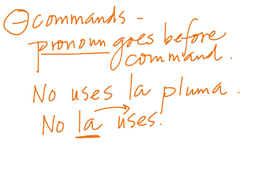 ⊖ commands -
pronoun goes before
command.
No uses la pluma.
No la uses.